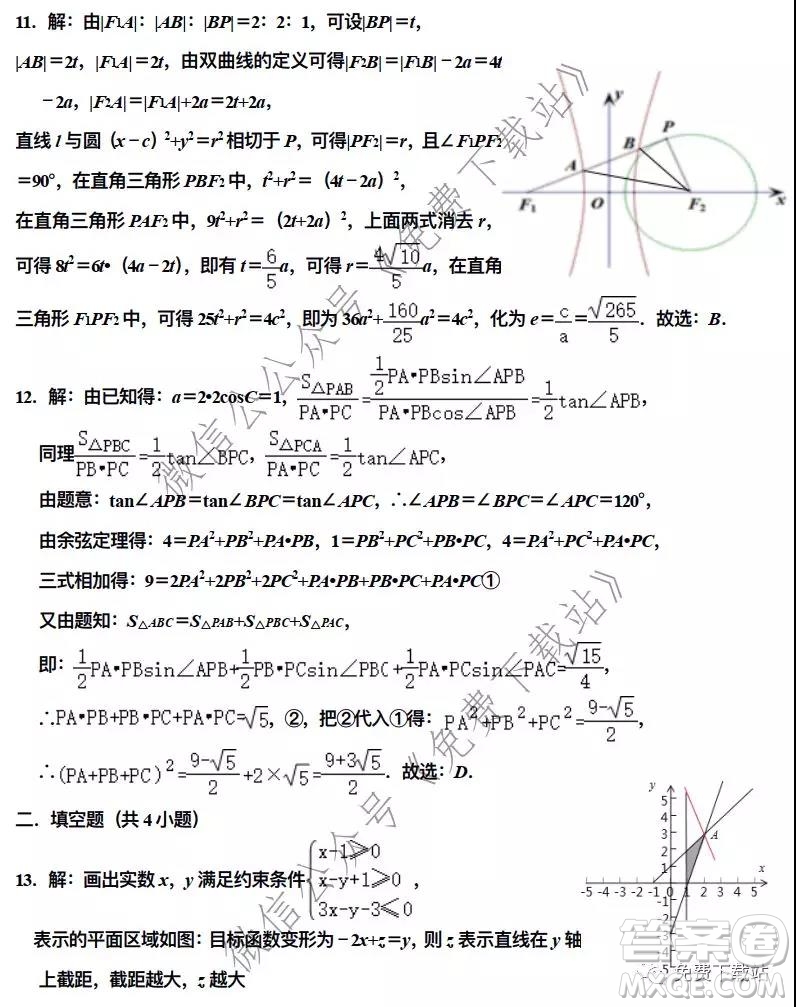 11．解：由|F₁A|：|AB|：|BP|＝2：2：1，可设|BP|＝t，
|AB|＝2t，|F₁A|＝2t，由双曲线的定义可得|F₂B|＝|F₁B|﹣2a＝4t
﹣2a，|F₂A|＝|F₁A|+2a＝2t+2a，
直线 l 与圆（x﹣c）²+y²＝r² 相切于 P，可得|PF₂|＝r，且∠F₁PF₂
＝90°，在直角三角形 PBF₂ 中，t²+r²＝（4t﹣2a）²，
在直角三角形 PAF₂ 中，9t²+r²＝（2t+2a）²，上面两式消去 r，
可得 8t²＝6t•（4a﹣2t），即有 t＝6/5 a，可得 r＝4√10/5 a，在直角
三角形 F₁PF₂ 中，可得 25t²+r²＝4c²，即为 36a²+160/25 a²＝4c²，化为 e＝c/a＝√265/5．故选：B．
y
P
B
A
F₁
O
F₂
x
12．解：由已知得：a＝2•2cosC＝1，S△PAB/PA•PC＝(1/2 PA•PBsin∠APB)/(PA•PBcos∠APB)＝1/2 tan∠APB，
同理 S△PBC/PB•PC＝1/2 tan∠BPC，S△PCA/PA•PC＝1/2 tan∠APC，
由题意：tan∠APB＝tan∠BPC＝tan∠APC，∴∠APB＝∠BPC＝∠APC＝120°，
由余弦定理得：4＝PA²+PB²+PA•PB，1＝PB²+PC²+PB•PC，4＝PA²+PC²+PA•PC，
三式相加得：9＝2PA²+2PB²+2PC²+PA•PB+PB•PC+PA•PC①
又由题知：S△ABC＝S△PAB+S△PBC+S△PAC，
即：1/2 PA•PBsin∠APB+1/2 PB•PCsin∠PBC+1/2 PA•PCsin∠PAC＝√15/4，
∴PA•PB+PB•PC+PA•PC＝√5，②，把②代入①得：PA²+PB²+PC²＝(9-√5)/2，
∴(PA+PB+PC)²＝(9-√5)/2+2×√5＝(9+3√5)/2．故选：D．
二．填空题（共 4 小题）
13．解：画出实数 x，y 满足约束条件{x-1≥0
x-y+1≥0
3x-y-3≤0，
表示的平面区域如图：目标函数变形为﹣2x+z＝y，则 z 表示直线在 y 轴
上截距，截距越大，z 越大
y
5
4
3
2
1
A
x
-5 -4 -3 -2 -1 0 1 2 3 4 5
-1
-2
-3
-4
-5
微信公众号《免费下载站》
微信公众号《免费下载站》
答案圈
免费下载站